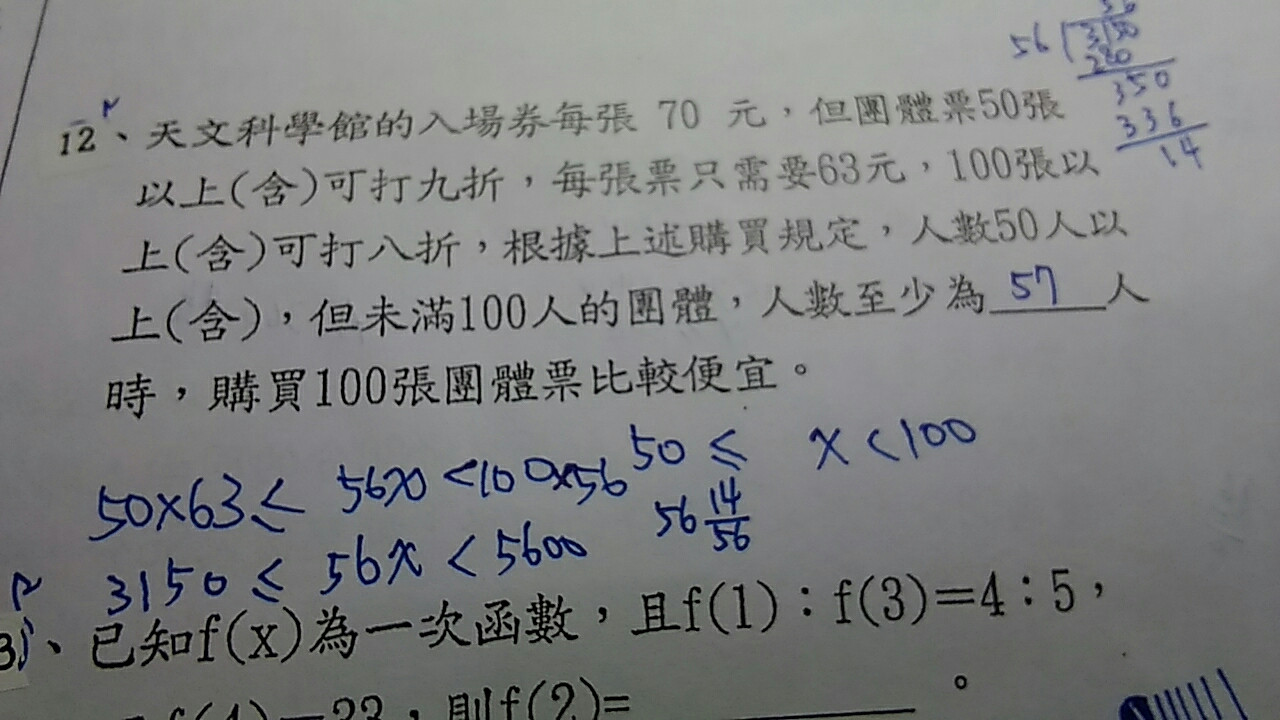 56
56 3150
280
350
336
14
12、天文科學館的入場券每張 70 元，但團體票50張
以上(含)可打九折，每張票只需要63元，100張以
上(含)可打八折，根據上述購買規定，人數50人以
上(含)，但未滿100人的團體，人數至少為 57 人
時，購買100張團體票比較便宜。
50×63≤ 56x <100×56
50 ≤ x<100
56 14/56
3150 ≤ 56x < 5600
3、已知f(x)為一次函數，且f(1)：f(3)=4：5，
f(4)=23，則f(2)= 。